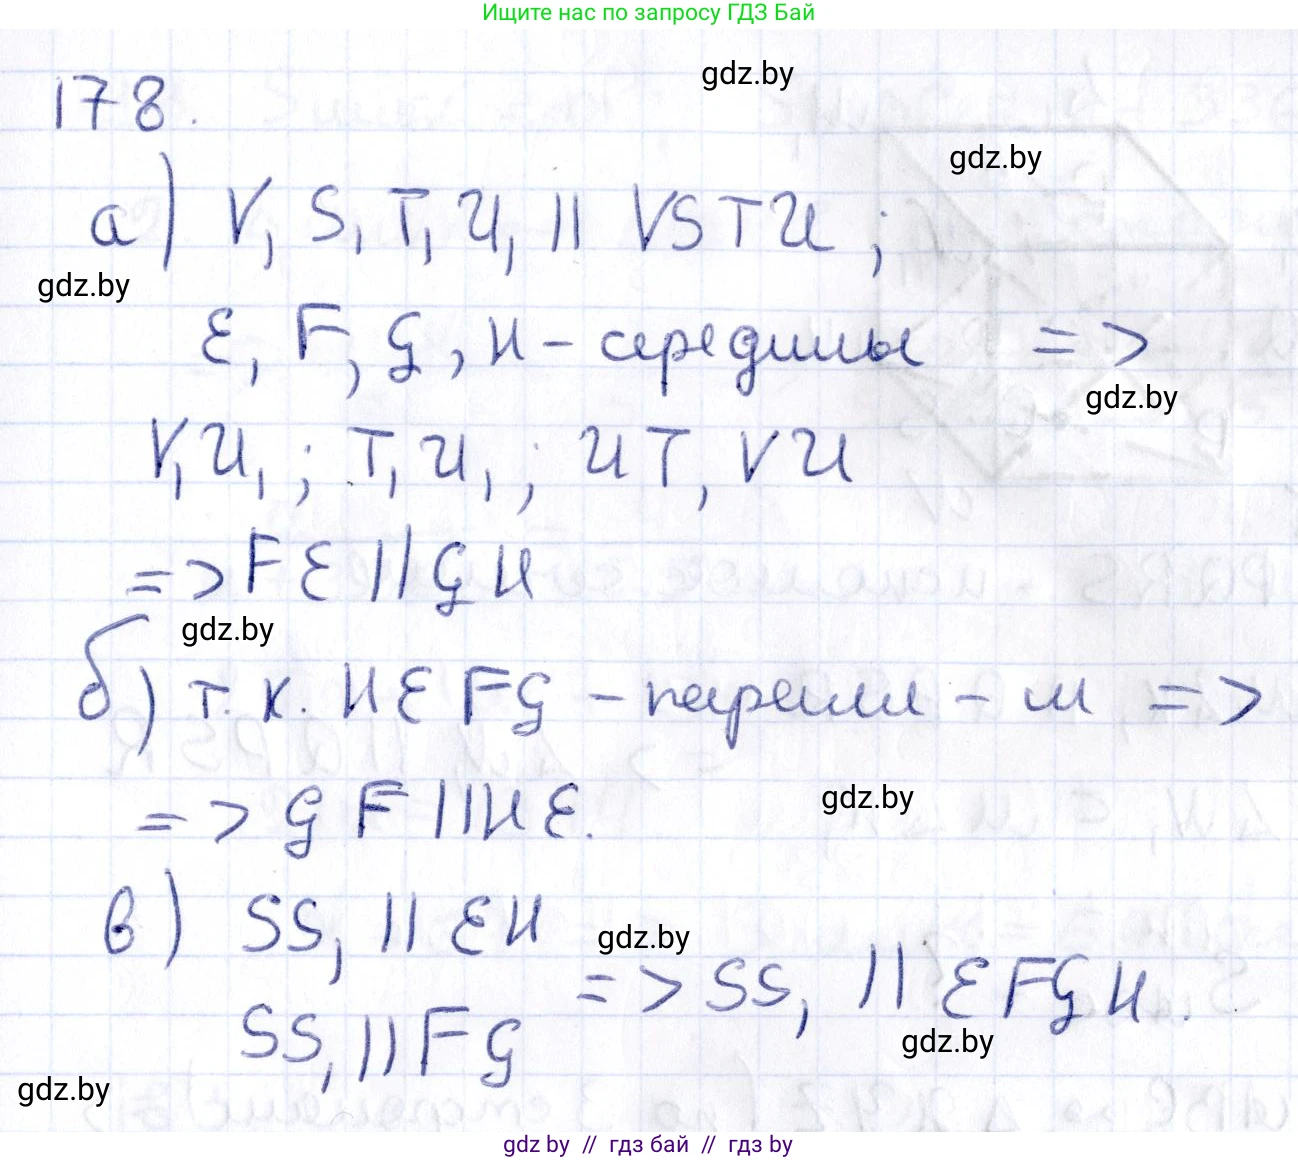 Ищите нас по запросу ГДЗ Бай
gdz.by
178.
gdz.by
а) V₁S₁T₁U₁ || VSTU;
gdz.by
E, F, G, H - середины =>
gdz.by
V₁U₁; T₁U₁; UT, VU
=> FE || GH
gdz.by
б) т.к. HEFG - паралл - м =>
gdz.by
=> GF || HE.
в) SS₁ || EH
gdz.by
=> SS₁ || EFGH.
SS₁ || FG
gdz.by
gdz.by
gdz by // гдз бай // гдз by